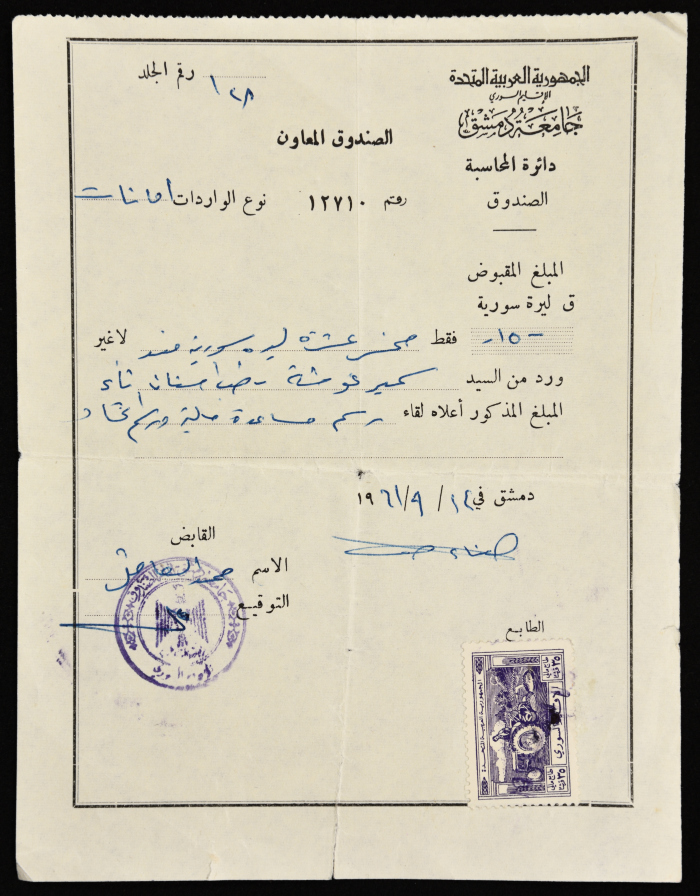 الجمهورية العربية المتحدة
الإقليم السوري
جامعة دمشق
دائرة المحاسبة
الصندوق
رقم الجلد ١٢٨
الصندوق المعاون
رقم ١٢٧١٠ نوع الواردات امانات
المبلغ المقبوض
ق ليرة سورية
-١٥- فقط خمس عشرة ليرة سورية لاغير
ورد من السيد سمير غوشة طب اسنان
المبلغ المذكور أعلاه لقاء رسم مساعدة مالية ورسم اتحاد
دمشق في ١٤/ ٩/ ١٩٦١
القابض
الاسم محمد
التوقيع
الطابع
الجمهورية العربية المتحدة
الإقليم السوري
٢٥
٢٥